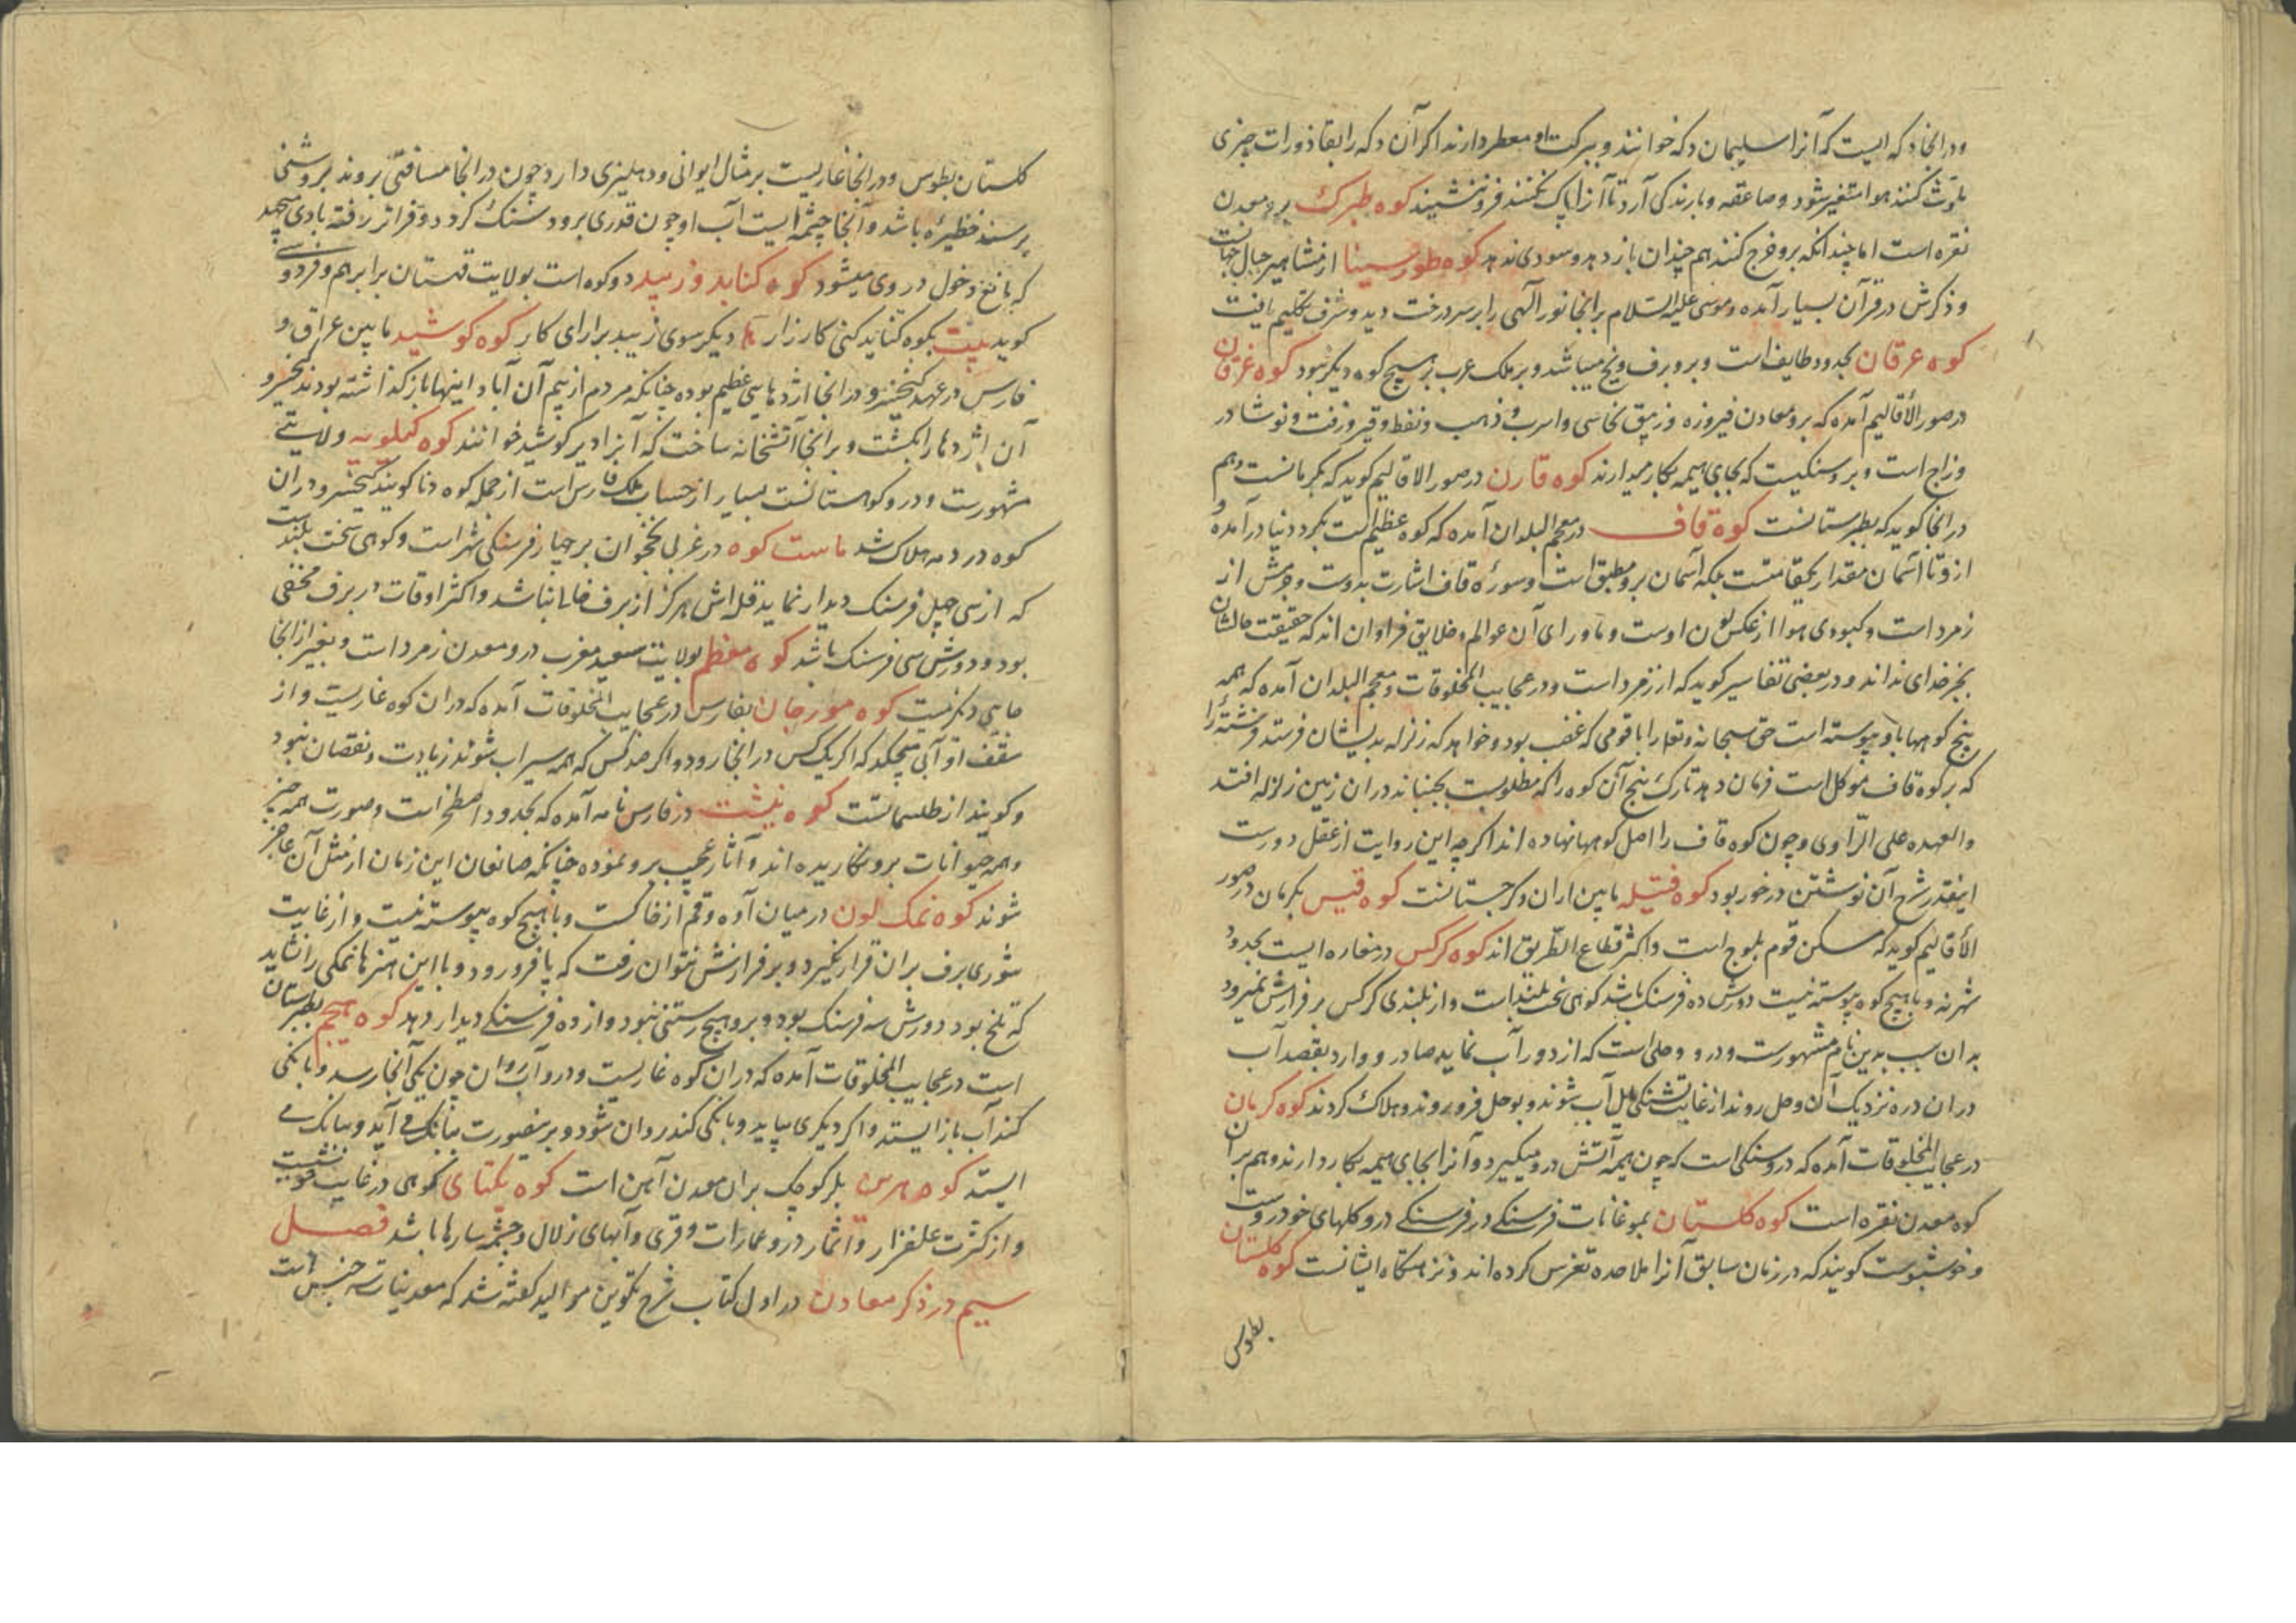 ودر انجا دکه ایست که آنرا سلیمان دکه خوانند و ببرکت او معطر دارند اکر آن دکه را بقاذورات چیزی
ملوّث کنند هوا متغیر شود و صاعقه و بارندکی آرد تا آنرا پاک نکنند فرو ننشیند کوه طبرک برو معدن
نقره است اما چندانکه برو خرج کنند هم چندان باز دهد و سودی ندهد کوه طور سینا از مشاهیر جبال جهانست
و ذکرش در قرآن بسیار آمده و موسی علیه السلام بر انجا نور الهی را بر سر درخت دید و شرف تکلیم یافت
کوه عرقان بحدود طایف است و برو برف و یخ میباشد و بر ملک عرب بر هیچ کوه دیکر نبود کوه غرقان
در صور الأقالیم آمده که برو معادن فیروزه و زیبق نحاسی و اسرب و ذهب و نفط و قیر و زفت و نوشادر
و زاج است و برو سنکیست که بجای هیمه بکار میدارند کوه قارن در صور الاقالیم کوید که بکرمانست و هم
در انجا کوید که بطبرستانست کوه قاف در معجم البلدان آمده که کوه عظیم است بکرد دنیا در آمده و
ازو تا آسمان مقدار یکقامتست بلکه آسمان برو مطبق است و سورهٔ قاف اشارت بدوست و جرمش از
زمرد است و کبودی هوا از عکس لون اوست و ماورای آن عوالم و خلایق فراوان اند که حقیقت حالشان
بجز خدای نداند و در بعضی تفاسیر کوید که از زمرد است و در عجایب المخلوقات و معجم البلدان آمده که همه
بیخ کوهها باو پیوسته است حق سبحانه و تعالی را با قومی که غضب بود و خواهد که زلزله بدیشان فرستد فرشتهٔ را
که بر کوه قاف موکل است فرمان دهد تا رک بیخ آن کوه را که مطلوبست بجنباند در ان زمین زلزله افتد
والعهده علی الرّاوی و چون کوه قاف را اصل کوهها نهاده اند اکرچه این روایت از عقل دورست
اینقدر شرح آن نوشتن در خور بود کوه فتیله مابین اران و کرجستانست کوه قیس بکرمان در صور
الأقالیم کوید که مسکن قوم بلوج است و اکثر قطاع الطّریق اند کوه کرکس در مفازه ایست بحدود
شهر نه و با هیچ کوه پیوسته نیست دورش ده فرسنک باشد کوهی سخت بلند است و از بلندی کرکس بر فرازش نمیرود
بدان سبب بدین نام مشهورست و درو وحلی است که از دور آب نماید صادر و وارد بقصد آب
در ان دره نزدیک آن وحل روند از غایت تشنکی میل آب شوند و بوحل فرو روند و هلاک کردند کوه کرمان
در عجایب المخلوقات آمده که درو سنکی است که چون هیمه آتش درو میکیرد و آنرا بجای هیمه بکار دارند و هم بر آن
کوه معدن نقره است کوه کلستان بموغانات فرسنکی در فرسنکی درو کلهای خودروست
و خوشبوست کویند که در زمان سابق آنرا ملاحده تغرس کرده اند و نزهتکاه ایشانست کوه کلستان
بطوس
کلستان بطوس ودر انجا غاریست بر مثال ایوانی و دهلیزی دارد چون در انجا مسافتی بروند بروشنی
برسند حظیره باشد و آنجا چشمه ایست آب او چون قدری برود سنک کردد و فراتر رفته بادی میجهد
که مانع دخول در وی میشود کوه کنابد و زیبد دو کوه است بولایت قهستان برابر هم و فردوسی
کوید بیت بکوه کنابد کنی کارزار دیکر سوی زیبد برارای کار کوه کوشید مابین عراق و
فارس در عهد کیخسرو در انجا اژدهایی عظیم بوده چنانکه مردم از بیم آن آباد اینها باز کذاشته بودند کیخسرو
آن اژدها را بکشت و بر انجا آتشخانه ساخت که آنرا دیر کوشید خوانند کوه کیلویه ولایتی
مشهورست و درو کوهستانست بسیار از حساب ملک فارس است از جمله کوه دنا کویند کیخسرو در ان
کوه در دمه هلاک شد ماست کوه در غربی نخجوان بر چهار فرسنکی شهر است و کوهی سخت بلندست
که از سی چهل فرسنک دیدار نماید قله اش هرکز از برف خالی نباشد و اکثر اوقات در برف مختفی
بود و دورش سی فرسنک باشد کوه مغطم بولایت سعید مغرب درو معدن زمرد است و بغیر از انجا
جایی دکر نیست کوه مورجان بفارس در عجایب المخلوقات آمده که در ان کوه غاریست و از
سقف او آبی میچکد که اکر یک کس در انجا رود و اکر صد کس که همه سیراب شوند زیادت و نقصان نبود
و کویند از طلسماتست کوه نبشت در فارس نامه آمده که بحدود اصطخر است و صورت همه چیز
و همه حیوانات برو نکاریده اند و آثار عجیب برو نموده چنانکه صانعان این زمان از مثل آن عاجز
شوند کوه نمک لون در میان آوه و قم از خاکست و با هیچ کوه پیوسته نیست و از غایت
شوری برف بر ان قرار نکیرد و بر فرازش نتوان رفت که پا فرو رود و با این هنر ها نمکی را نشاید
که تلخ بود دورش سه فرسنک بود و برو هیچ رستنی نبود و از ده فرسنکی دیدار دهد کوه هیجم بطبرستان
است در عجایب المخلوقات آمده که در ان کوه غاریست و درو آب روان چون یکی آنجا رسد و بانکی
کند آب باز ایستد و اکر دیکری بیاید و بانکی کند روان شود و برینصورت ببانک می آید و ببانک می
ایستد کوه هرس بلر کوچک بر ان معدن آهن است کوه یکتای کوهی در غایت خوشیست
و از کثرت علفزار و اثمار درو عمارات و قری و آبهای زلال و چشمه سارها باشد فصل
سیم در ذکر معادن در اول کتاب شرح تکوین موالید کفته شد که معدنیات سه جنس است